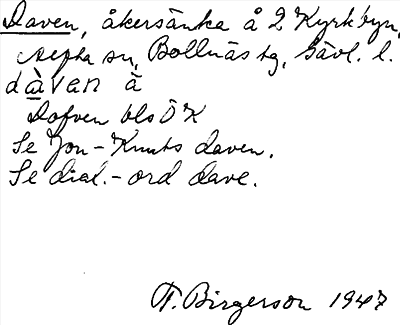 Daven, åkersänka å 2 Kyrkbyn,
Alfta sn, Bollnäs tg, Gävl. l.
dàvan à
Dofven bls Ö K
Se Jon-Knuts daven.
Se dial.-ord dave.
F. Birgerson 1947